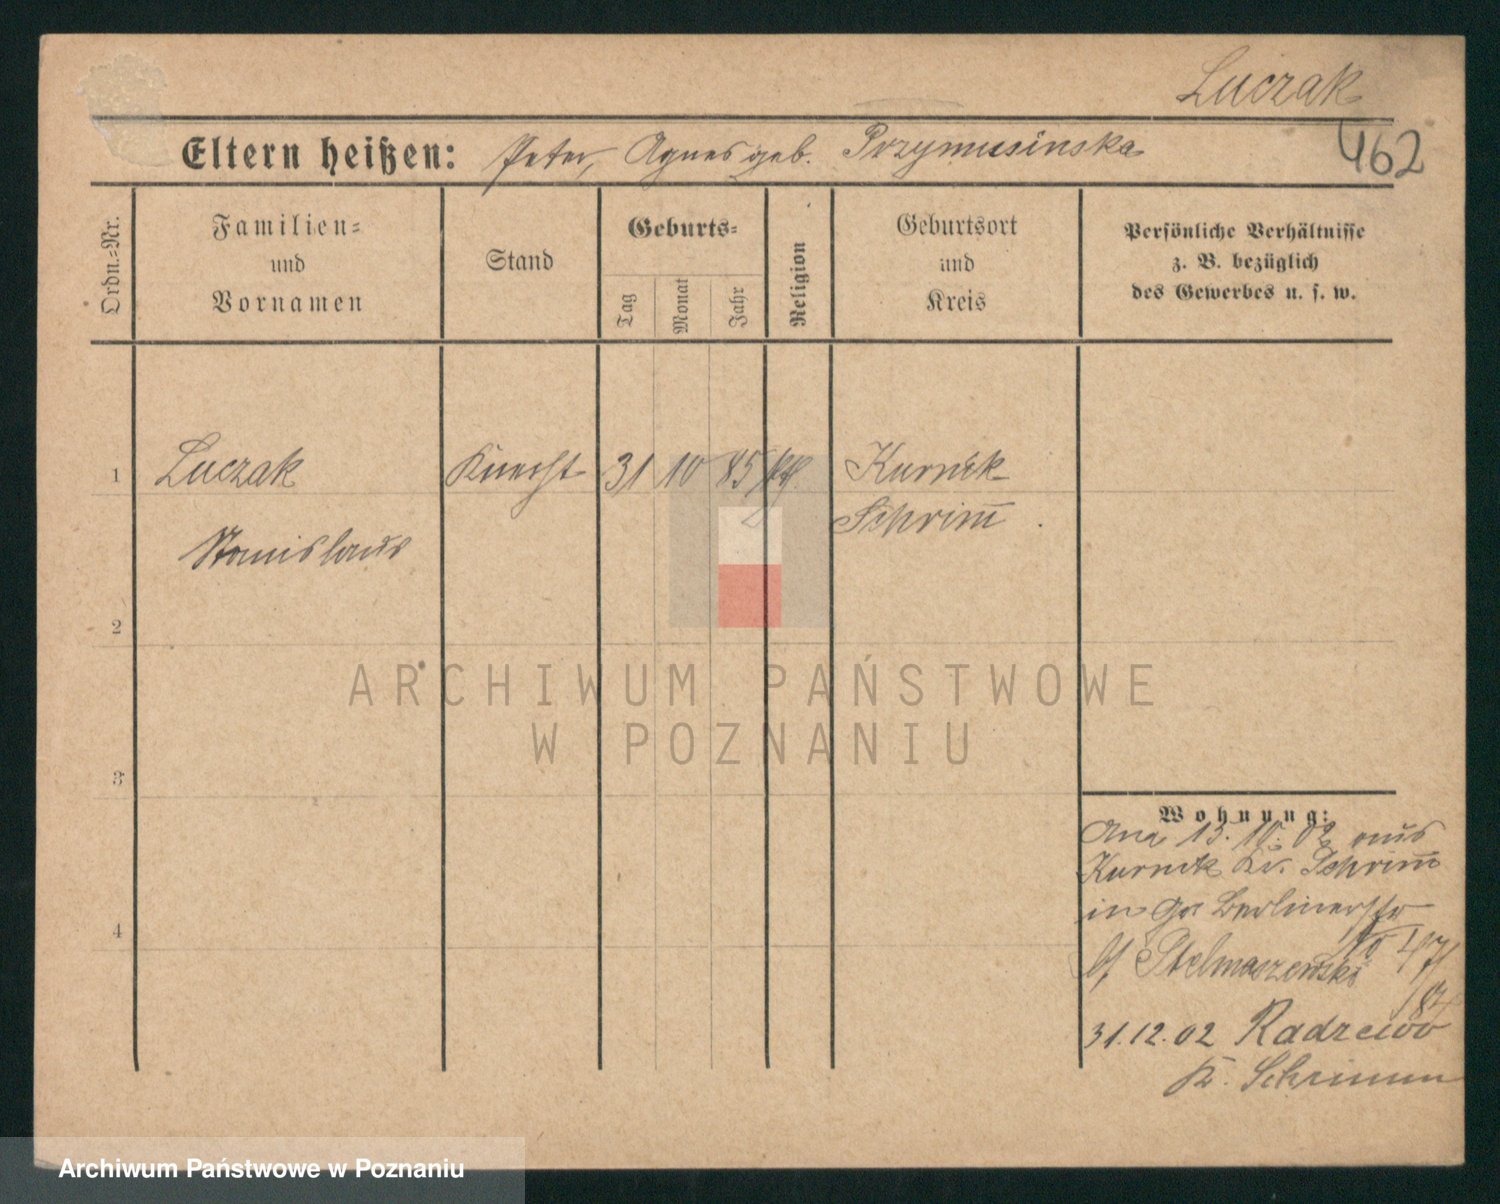 Luczak
462
Eltern heißen: Peter, Agnes geb. Przymusinska
Ordn.=Nr.
Familien=
und
Vornamen
Stand
Geburts=
Tag
Monat
Jahr
Religion
Geburtsort
und
Kreis
Persönliche Verhältnisse
z. B. bezüglich
des Gewerbes u. s. w.
1 Luczak Knecht 31 10 85 kth. Kurnik
Schrim̅
Stanislaus
2
3
4
Wohnung:
13. 10. 02 aus
Kurnik Kr. Schrim̅
in Berlinerstr
No 47/
b/ Stelmaszewski
31.12.02 Radzewo
K. Schrimm
ARCHIWUM PAŃSTWOWE
W POZNANIU
Archiwum Państwowe w Poznaniu